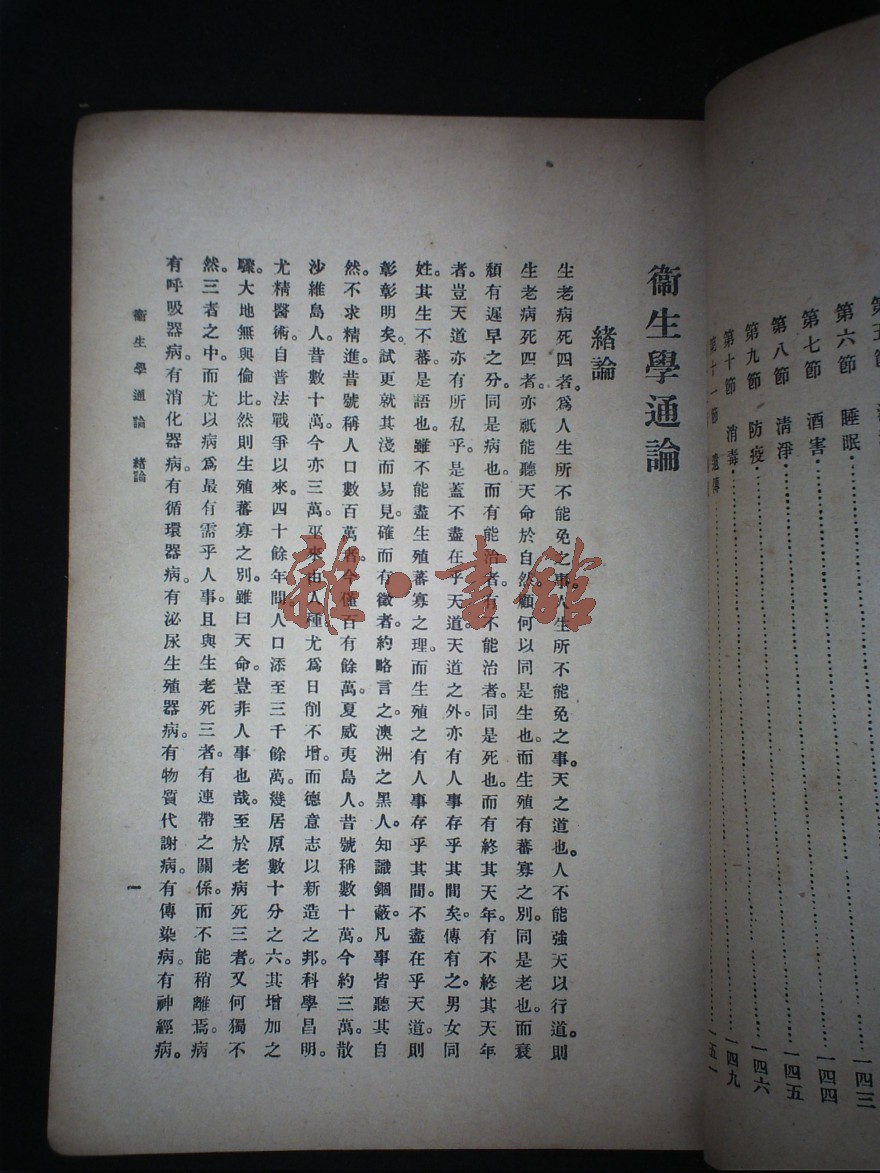 第六節 睡眠 一四三
第七節 酒害 一四四
第八節 清淨 一四五
第九節 防疫 一四六
第十節 消毒 一四九
第十一節 遺傳 一五一
衞生學通論
緒論
生老病死四者。爲人生所不能免之事。人生所不能免之事。天之道也。人不能強天以行道。則
生老病死四者。亦祇能聽天命於自然。顧何以同是生也。而生殖有蕃寡之別。同是老也。而衰
頹有遲早之分。同是病也。而有能治者。有不能治者。同是死也。而有終其天年。有不終其天年
者。豈天道亦有所私乎。是蓋不盡在乎天道。天道之外。亦有人事存乎其間矣。傳有之。男女同
姓。其生不蕃。是語也。雖不能盡生殖蕃寡之理。而生殖之有人事存乎其間。不盡在乎天道。則
彰彰明矣。試更就其淺而易見。確而有徵者。約略言之。澳洲之黑人。知識錮蔽。凡事皆聽其自
然。不求精進。昔號稱人口數百萬者。今僅百有餘萬。夏威夷島人。昔號稱數十萬。今約三萬。散
沙維島人。昔數十萬。今亦三萬。巫來由人種。尤爲日削不增。而德意志以新造之邦。科學昌明。
尤精醫術。自普法戰爭以來。四十餘年間。人口添至三千餘萬。幾居原數十分之六。其增加之
驟。大地無與倫比。然則生殖蕃寡之別。雖曰天命。豈非人事也哉。至於老病死三者。又何獨不
然。三者之中。而尤以病爲最有需乎人事。且與生老死三者。有連帶之關係。而不能稍離焉。病
有呼吸器病。有消化器病。有循環器病。有泌尿生殖器病。有物質代謝病。有傳染病。有神經病。
衞生學通論 緒論
一
雜·書館